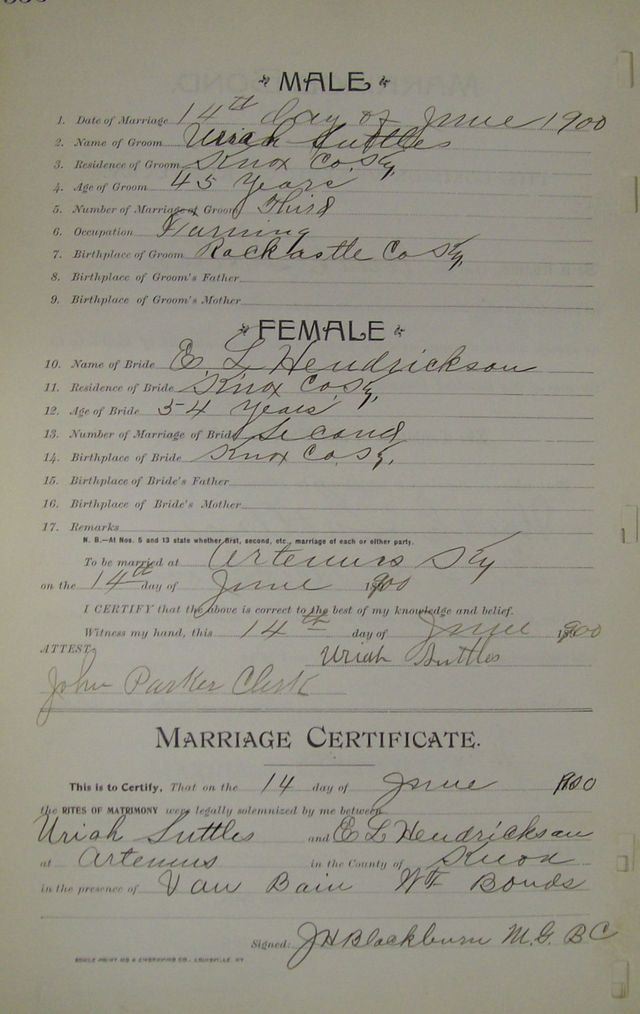 MALE
1. Date of Marriage 14th day of June 1900
2. Name of Groom Uriah Suttles
3. Residence of Groom Knox Co. Ky,
4. Age of Groom 45 Years
5. Number of Marriage of Groom Third
6. Occupation Farming
7. Birthplace of Groom Rockcastle Co Ky,
8. Birthplace of Groom's Father
9. Birthplace of Groom's Mother
FEMALE
10. Name of Bride E. L Hendrickson
11. Residence of Bride Knox Co. Ky,
12. Age of Bride 54 Years
13. Number of Marriage of Bride Second
14. Birthplace of Bride Knox Co. Ky.
15. Birthplace of Bride's Father
16. Birthplace of Bride's Mother
17. Remarks
N. B.—At Nos. 5 and 13 state whether first, second, etc., marriage of each or either party.
To be married at Artemus Ky
on the 14th day of June 1900
I CERTIFY that the above is correct to the best of my knowledge and belief.
Witness my hand, this 14th day of June 1900
ATTEST: Uriah Suttles
John Parker Clerk
MARRIAGE CERTIFICATE.
This is to Certify, That on the 14 day of June 1900
the RITES OF MATRIMONY were legally solemnized by me between
Uriah Suttles and E L Hendrickson
at Artemus in the County of Knox
in the presence of Van Bain Wt Bonds
Signed: J H Blackburn M. G. B C